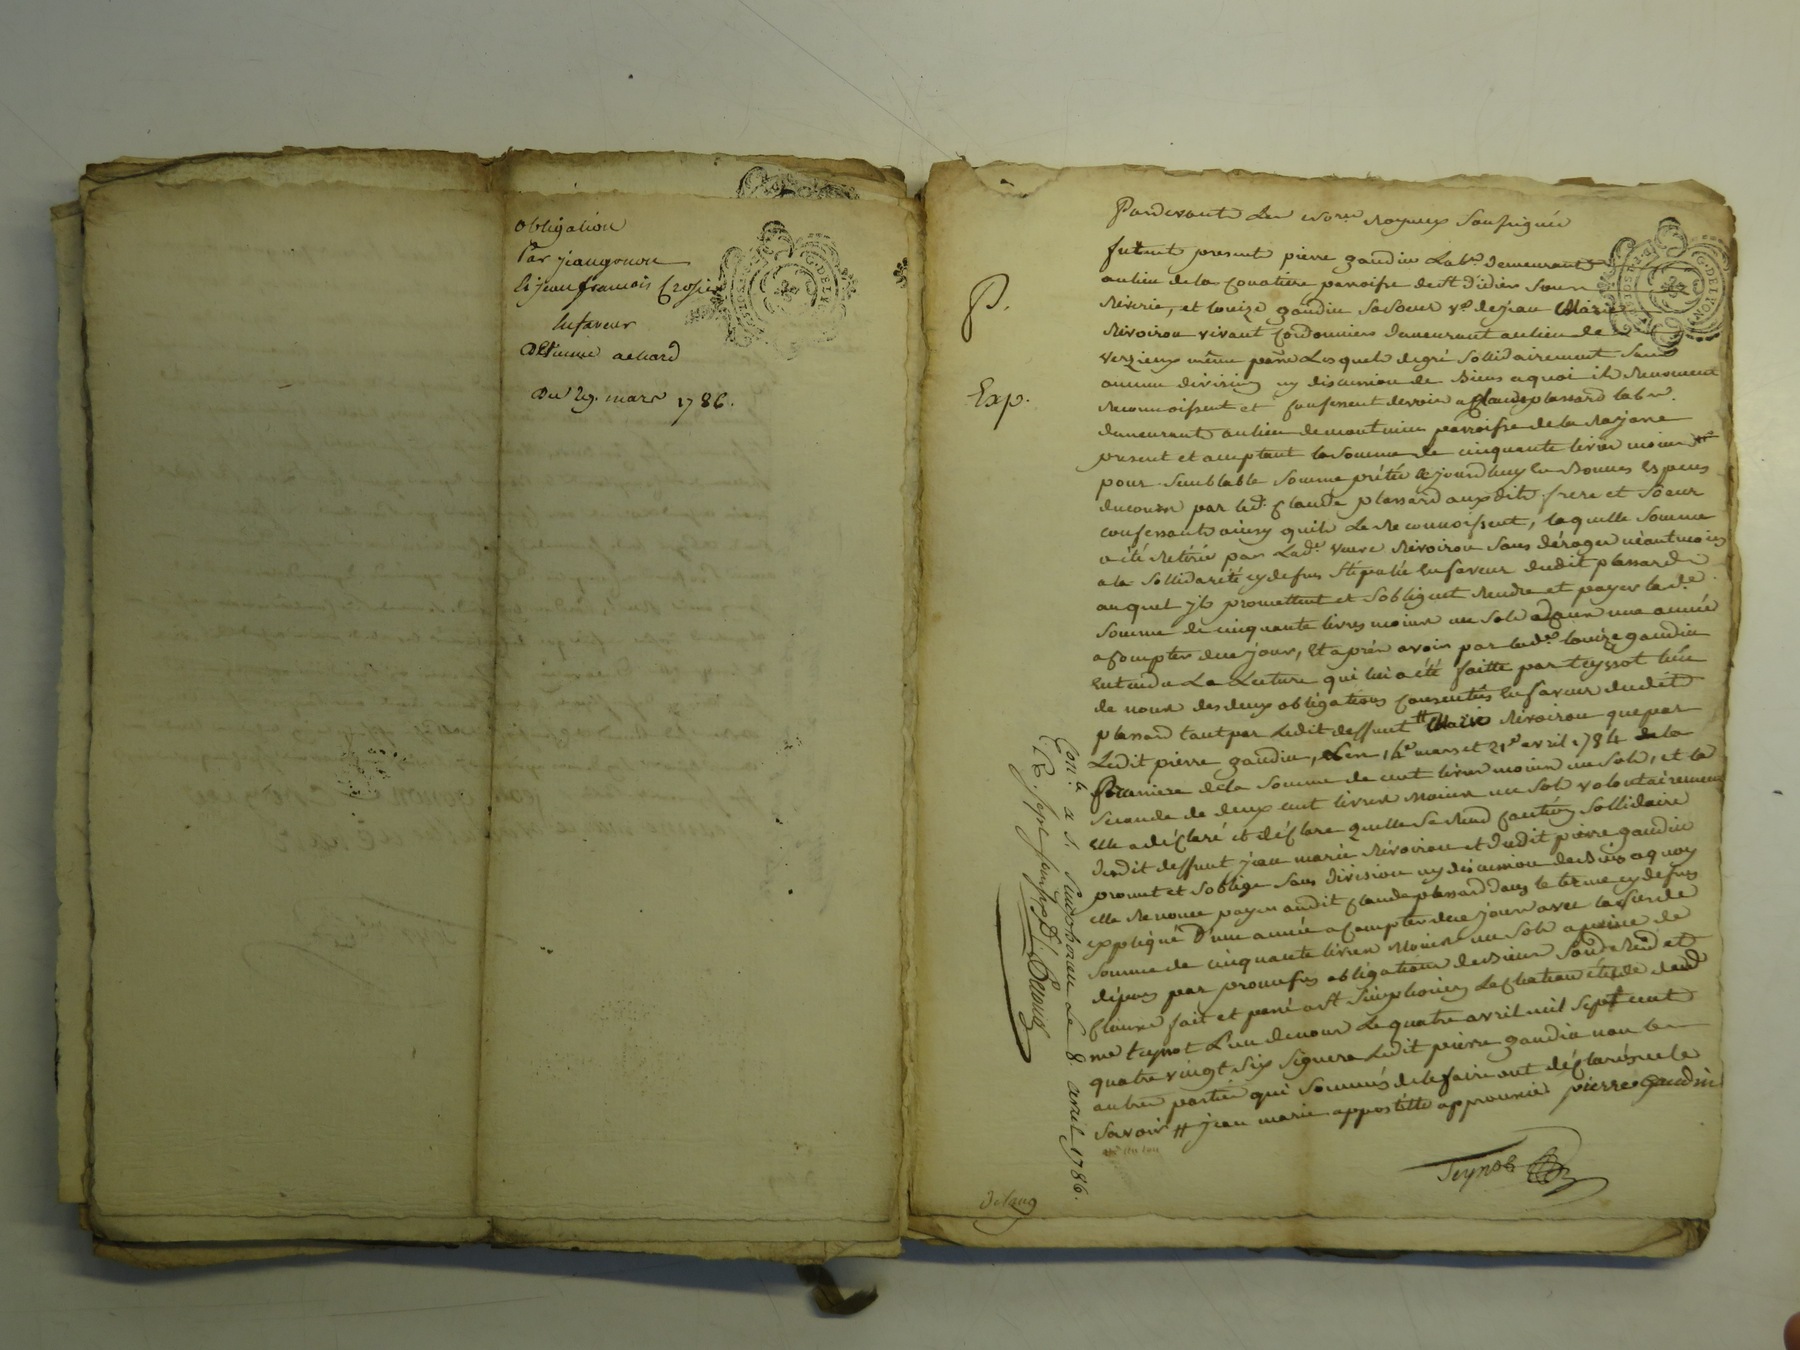 obligation
Par jean gonon
& jean françois Crozier
En faveur
D'Etienne achard
Du 29. mars 1786.
Pardevant Les nores royaux Soussignés
P.
furent present pierre gaudin Labr. demeurant
au lieu de la Covatiere parroisse de St didier Sous
Riverie, et Louize gaudin Sa Soeur ve. de jean Marie
Rivoiron vivant Cordonnier demeurant au lieu de
Verzieux même parre Lesquels de gré Sollidairement Sans
aucune division ny discussion de Biens a quoi ils Renoncent
Exp.
Reconnoissent et Confessent devoir a Claude plassard labr.
demeurant au lieu de montmin parroisse de la Rajasse
present et acceptant la Somme de cinquante livres moins
pour Semblable Somme prêtée ce jourdhuy En Bonnes Especes
du cours par led. Claude plassard auxdits frere et Soeur
confessants ainsy quils Le Reconnoissent, laquelle Somme
a été Retirée par Lade. veuve Rivoiron Sans déroger néantmoins
a la Sollidarité cy dessus Stipulée En faveur dudit plassard
auquel ils promettent et S'obligent Rendre et payer lade.
Somme de cinquante livres moins un Sols dans une année
a Compter de ce jour, Et après avoir par lade. Louize gaudin
Entendu La Lecture qui lui a été faitte par teyssot L'un
de nous des deux obligations Consenties En faveur dudit
plassard tant par Ledit deffunt # Marie Rivoiron que par
Ledit pierre gaudin, Les 14e mars et 21e avril 1784 de la
Premiere de la Somme de cent livres moins un Sols, et la
Seconde de deux cent livres moins un Sol volontairement
Elle a déclaré et déclare quelle Se Rend Caution Sollidaire
dudit deffunt jean marie Rivoiron et dudit pierre gaudin
promet et S'oblige Sans division ny discussion de Biens a quoy
elle Renonce payer audit Claude plassard dans le terme cy dessus
expliqué D'une année a Compter de ce jour avec la Susde
Somme de cinquante livres Moins un Sols a peine de
dépens par promesses obligations de Biens Soud Rend et
Clause fait et passé a St Simphorien Le Chateau étude dud
me teyssot L'un de nous Le quatre avril mil Sept cent
quatre vingt Six Signera Ledit pierre gaudin non les
autres parties qui Sommés de le faire ont déclaré ne le
Savoir # jean marie apostille approuvée pierre gaudin
Conlé a St Simphorien Le 8. avril 1786.